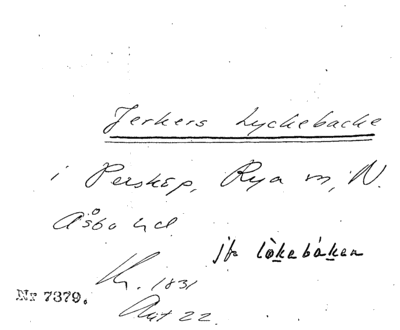 Jerkers Lyckebacke
i Perstap, Rya sn, N.
Åsbo hd
jfr lökebåken
Kr. 1831
Akt 22
Nr 7379.